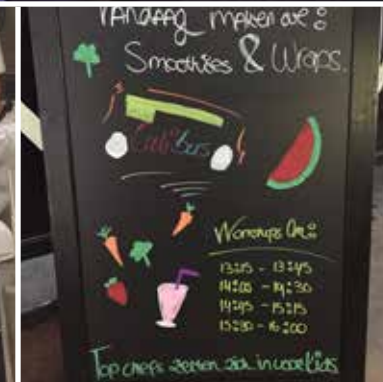 Vandaag maken we:
Smoothies & Wraps.
Workshops Om:
13:15 - 13:45
14:00 - 14:30
14:45 - 15:15
15:30 - 16:00
Top chefs zetten zich in voor Kids